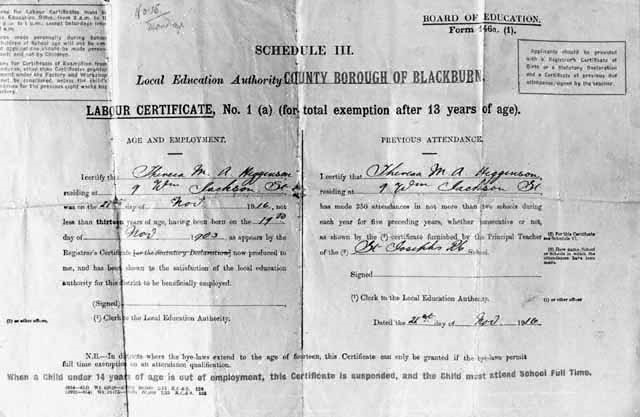 No. 16
BOARD OF EDUCATION.
Form 146a. (1).
for Labour Certificates must
Education Office, from 9 a.m. to
p.m. to 5 p.m., except Saturdays
a.m.
made personally during School
children of School age will not be
application should be made
and not by Children.
for Certificates of Exemption from
attendance, other than Certificates granted
under the Factory and Workshop
be considered, unless the child's
for the previous eight weeks has
Applicants should be provided
with a Registrar's Certificate of
Birth or a Statutory Declaration
and a Certificate of previous
attendance, signed by the teacher.
SCHEDULE III.
Local Education Authority COUNTY BOROUGH OF BLACKBURN.
LABOUR CERTIFICATE, No. 1 (a) (for total exemption after 13 years of age).
AGE AND EMPLOYMENT.
I certify that Theresa M. A Higginson
residing at 9 Wm Jackson St
was on the 21st day of Nov 1916, not
less than thirteen years of age, having been born on the 19th
day of Nov 1903 as appears by the
Registrar's Certificate [or the Statutory Declaration] now produced to
me, and has been shown to the satisfaction of the local education
authority for this district to be beneficially employed.
(Signed)
(1) Clerk to the Local Education Authority.
(1) or other officer.
PREVIOUS ATTENDANCE.
I certify that Theresa M A Higginson
residing at 9 Wm Jackson St
has made 350 attendances in not more than two schools during
each year for five preceding years, whether consecutive or not,
as shown by the (2) certificate furnished by the Principal Teacher
of the (3) St Josephs RC School.
(2) For this Certificate
see Schedule VI.
(3) Here name School
or Schools in which the
attendances have been
made.
Signed
(1) Clerk to the Local Education Authority.
(1) or other officer.
Dated the 21st day of Nov 1916
N.B.—In districts where the bye-laws extend to the age of fourteen, this Certificate can only be granted if the bye-laws permit
full time exemption on an attendance qualification.
When a Child under 14 years of age is out of employment, this Certificate is suspended, and the Child must attend School Full Time.